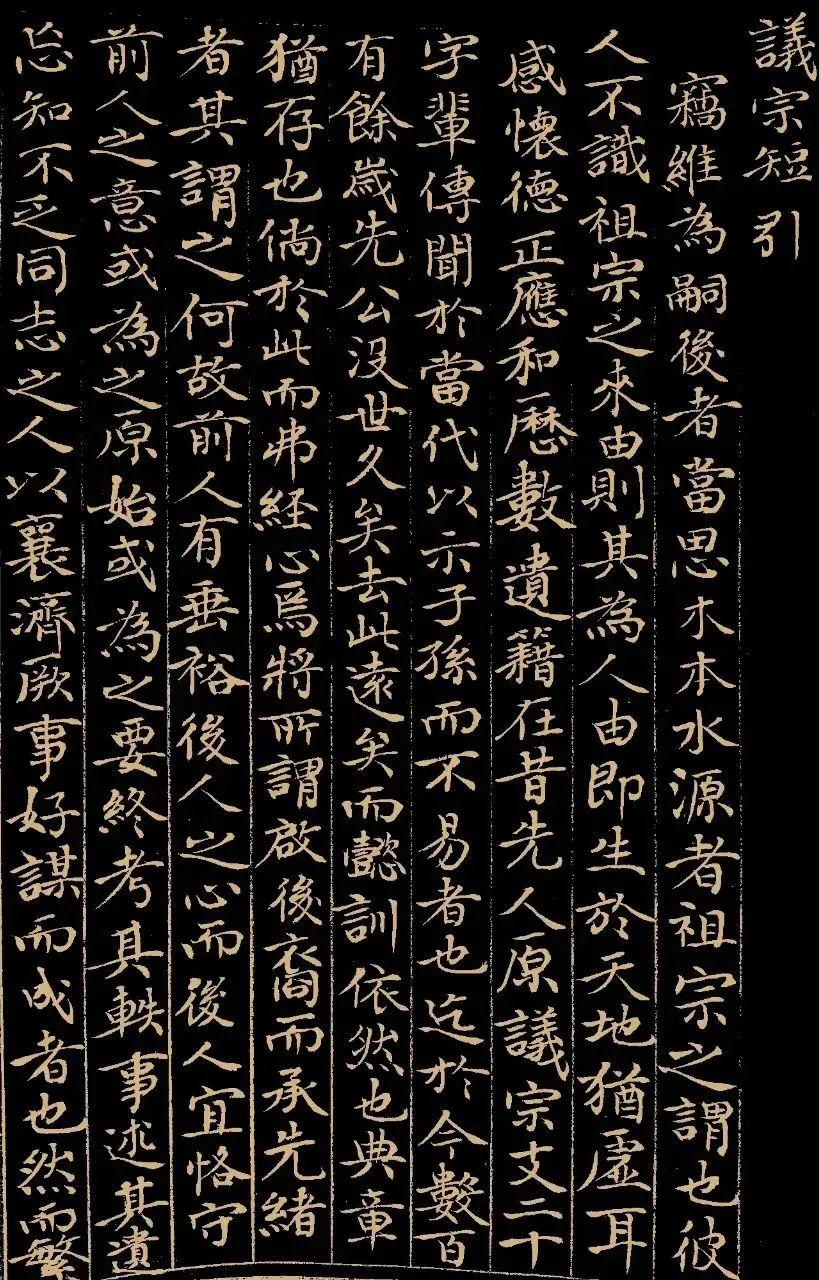 議宗短引
竊維為嗣後者當思木本水源者祖宗之謂也彼
人不識祖宗之來由則其為人由即生於天地猶虛耳
感懷德正應和曆數遺籍在昔先人原議宗支二十
字輩傳聞於當代以示子孫而不易者也迄於今數百
有餘歲先公没世久矣去此遠矣而懿訓依然也典章
猶存也倘於此而弗経心焉將所謂啟後裔而承先緒
者其謂之何故前人有垂裕後人之心而後人宜恪守
前人之意或為之原始或為之要終考其軼事述其遺
忘知不乏同志之人以襄濟厥事好謀而成者也然而繁